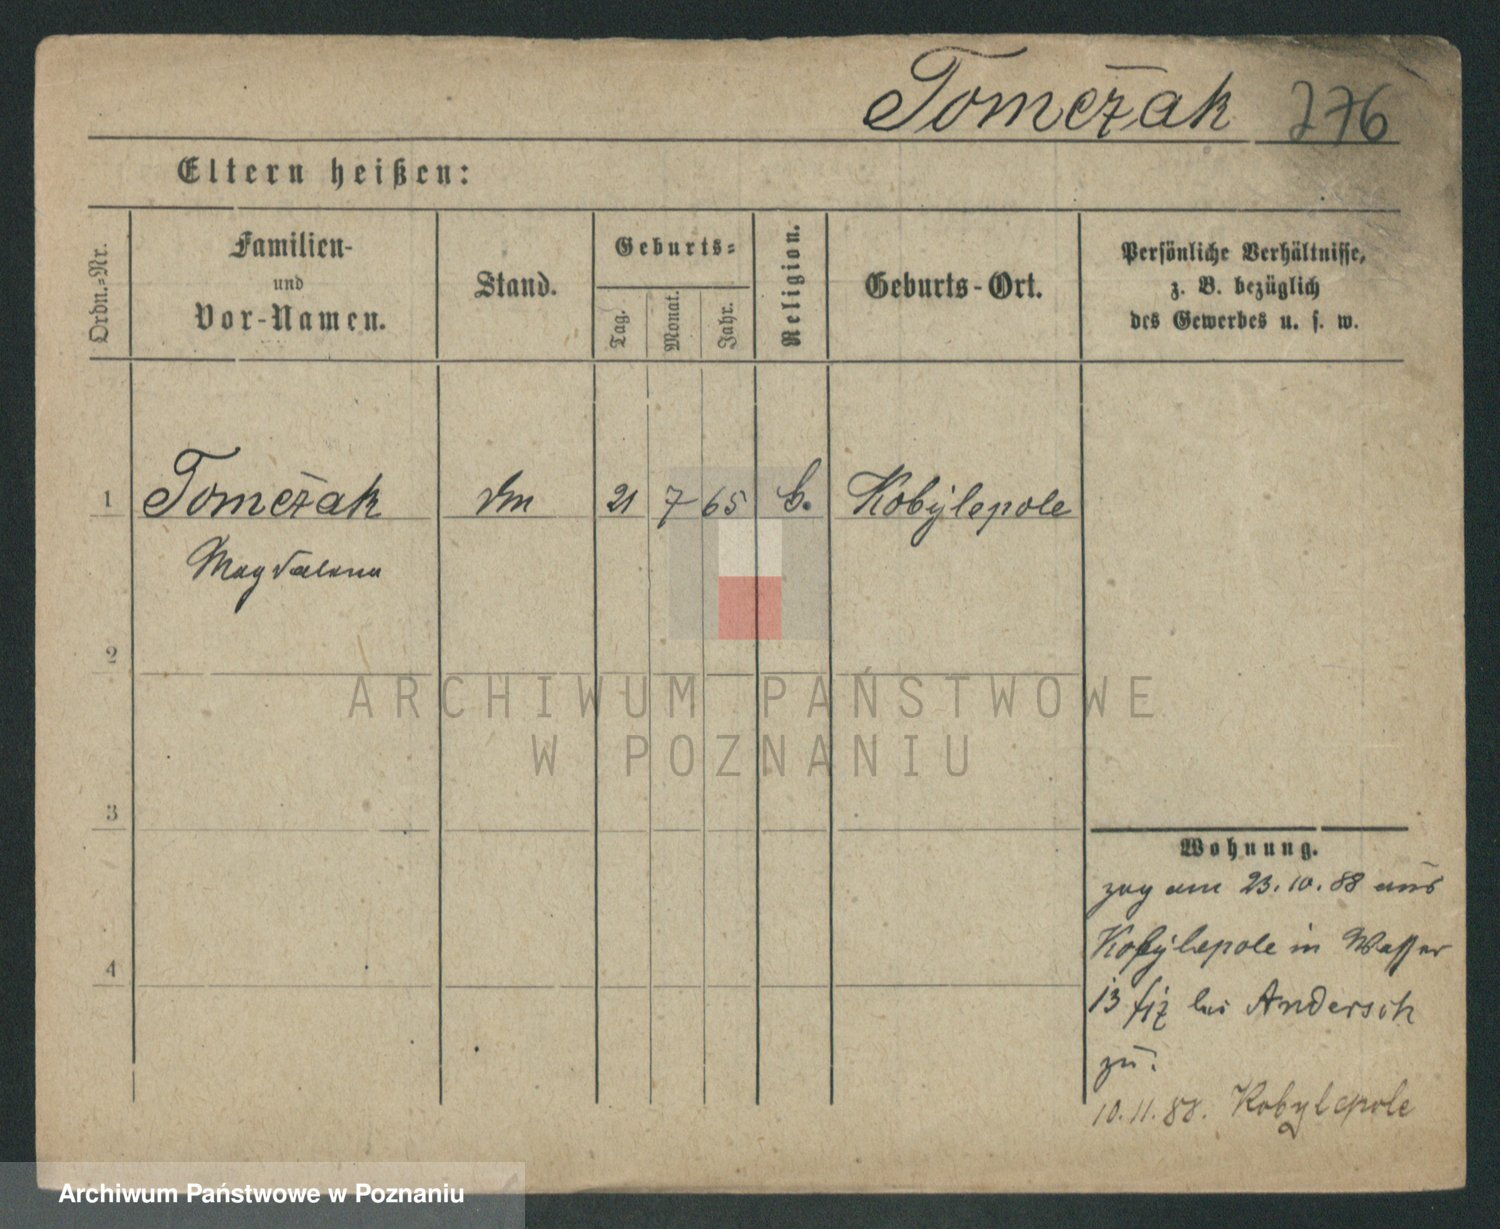 Tomczak 276
Eltern heißen:
Ordn.-Nr.
Familien-
und
Vor-Namen.
Stand.
Geburts-
Tag.
Monat.
Jahr.
Religion.
Geburts-Ort.
Persönliche Verhältnisse,
z. B. bezüglich
des Gewerbes u. s. w.
1 Tomczak 21 7 65 Kobylepole
Magdalena
2
ARCHIWUM PAŃSTWOWE
W POZNANIU
3
Wohnung.
zog am 23.10.88 aus
Kobylepole in Wasser
13 bei Andersch
zu.
4
10.11.88. Kobylepole
Archiwum Państwowe w Poznaniu